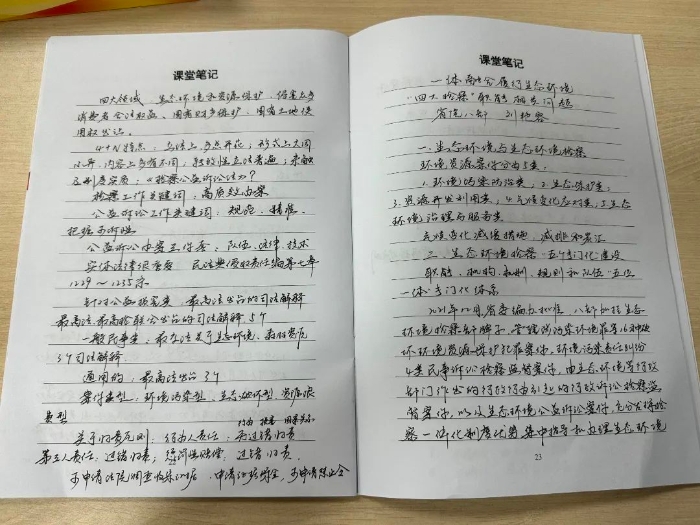 课堂笔记
四大领域 生态环境和资源保护，食品药品
消费者合法权益、国有财产保护、国有土地使
用权出让。
4+N特点：立法上多点开花；形式上大同
小异，内容上多有不同；
《检察公益诉讼法》？
检察工作关键词：高质效办案
公益诉讼工作关键词：规范、精准、
把握可诉性
公益诉讼办案三件套：队伍、法律、技术
实体法律很重要 民法典侵权责任编第七章
1229～1235条
针对公益损害类 最高法出台的司法解释
最高法、最高检联合出台的司法解释 5个
一般民事类：最高法关于生态环境、森林资源
3个司法解释
通用的：最高法出台 3个
案件类型：环境污染型、生态破坏型、资源浪
费型
行为 损害 因果关系
关于归责原则：行为人责任：无过错归责
第三人责任：过错归责；惩罚性赔偿：过错归责。
可申请法院调查收集证据 申请证据保全，可申请禁止令
22
课堂笔记
一体融合履行生态环境
“四大检察”职能相关问题
省院八部 刘艳
一、生态环境与生态环境检察
环境资源案件分为5类：
1. 环境污染防治类；2. 生态保护类；
3. 资源开发利用类；4. 气候变化应对类；5. 生态
环境治理与服务类
气候变化减缓措施，减排和碳汇
二、生态环境检察“五个专门化”建设
职能、机构、机制、规则和队伍“五位
一体”专门化体系
2021年12月，省委编办批准，八部加挂生态
环境检察部牌子，管辖污染环境罪等16种破
坏环境资源保护犯罪案件，环境污染责任纠纷
4类民事诉讼检察监督案件，由生态环境等行政
部门作出的行政行为引起的行政诉讼检察监
督案件，以及生态环境公益诉讼案件，充分发挥检
察一体化制度优势 集中指导和办理生态环境
23